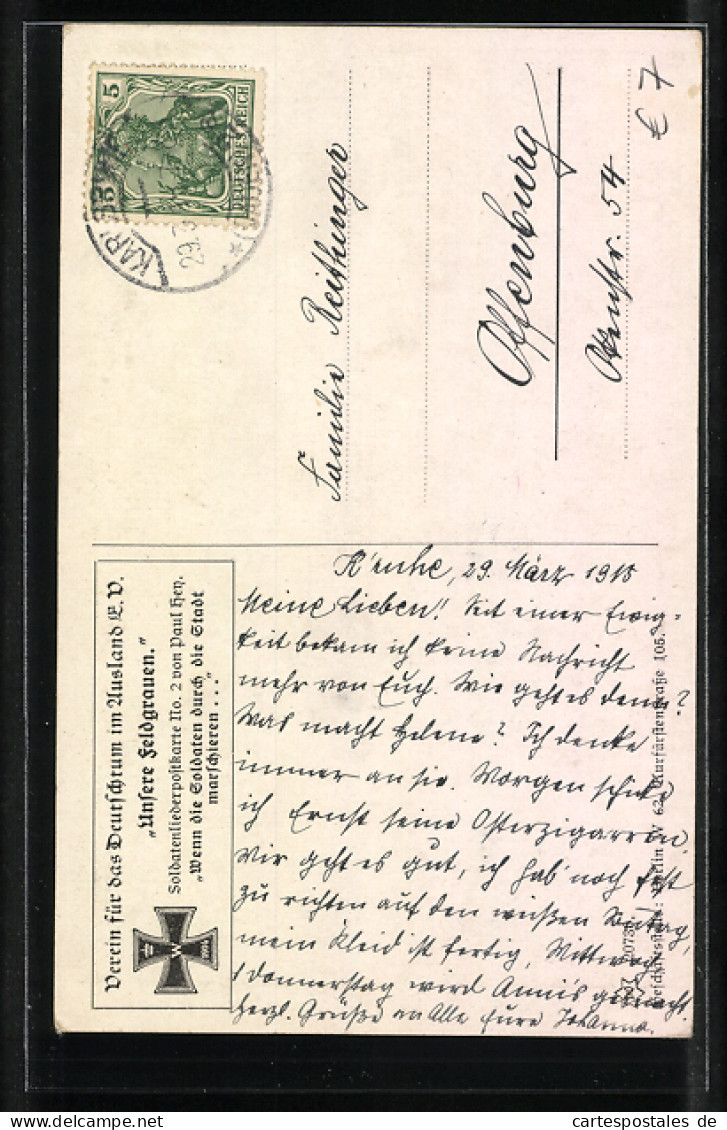 Verein für das Deutschtum im Ausland E. V.
„Unsere Feldgrauen.“
Soldatenliederpostkarte No. 2 von Paul Hey.
„Wenn die Soldaten durch die Stadt
marschieren . . .“
W
1914
5
DEUTSCHES REICH
KARLSRUHE
29.3
Familie Reithinger
Offenburg
str. 54
€ 7
K'ruhe, 29. März 1915
Meine Lieben! Seit einer Ewig-
keit bekam ich keine Nachricht
mehr von Euch. Wie geht es denn?
Was macht Helene? Ich denke
immer an sie. Morgen schicke
ich Ernst seine Osterzigarren.
Mir geht es gut, ich hab' noch fest
zu richten auf den weißen Sonntag,
mein Kleid ist fertig, Mittwoch
/ Donnerstag wird Anni's gemacht.
Herzl. Grüße an Alle Eure Johanna.
Geschäftsstelle: Berlin W 62, Kurfürstenstraße 105.
cartespostales de
cartespostales.de